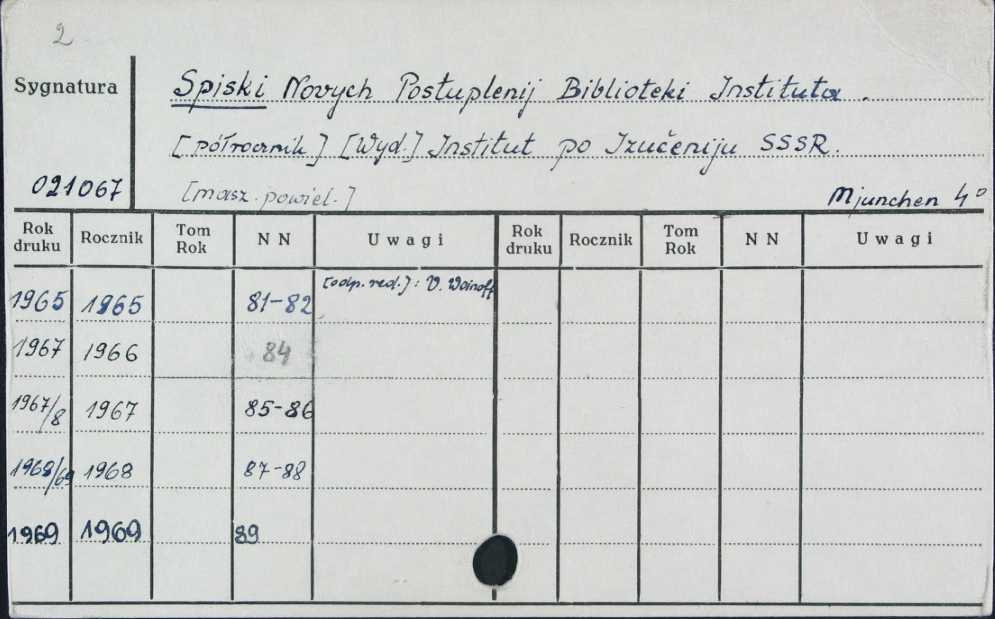 2
Sygnatura
Spiski Novych Postuplenij Biblioteki Instituta.
[półrocznik] [Wyd.] Institut po Izučeniju SSSR.
021067
[masz. powiel.] Mjunchen 4°
Rok druku Rocznik Tom Rok NN Uwagi Rok druku Rocznik Tom Rok NN Uwagi
1965 1965 81-82 [odp. red.]: V. Woinoff
1967 1966 84
1967/8 1967 85-86
1968/69 1968 87-88
1969 1969 89